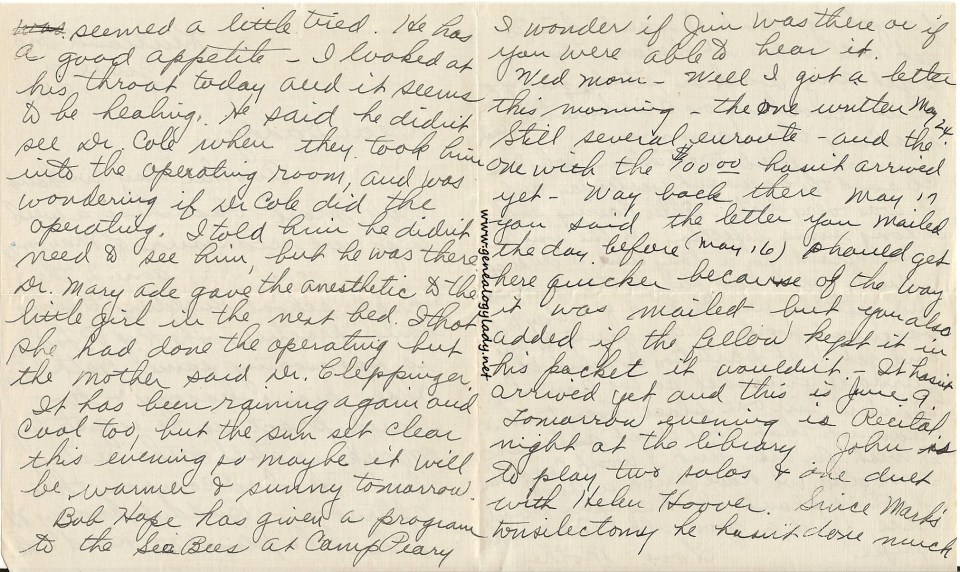 was. seemed a little tired. He has
a good appetite - I looked at
his throat today and it seems
to be healing. He said he didn't
see Dr. Cole when they took him
into the operating room, and was
wondering if Dr Cole did the
operating. I told him he didn't
need to see him, but he was there
Dr. Mary Ade gave the anesthetic to the
little girl in the next bed. I thot
she had done the operating but
the mother said Dr. Cleppinger.
It has been raining again and
cool too, but the sun set clear
this evening so maybe it will
be warmer & sunny tomorrow.
Bob Hope has given a program
to the SeaBees at Camp Peary
I wonder if Jim was there or if
you were able to hear it.
Wed Mom - Well I got a letter
this morning - the one written May 24.
Still several enroute - and the
one with the $100 00 hasn't arrived
yet - Way back there May 17
you said the letter you mailed
the day before (May 16) should get
here quicker because of the way
it was mailed but you also
added if the fellow kept it in
his pocket it wouldn't. - It hasn't
arrived yet and this is June 9.
Tomorrow evening is Recital
night at the library John is
to play two solos & one duet
with Helen Hoover. Since Mark's
tonsilectomy he hasn't done much
www.genealogylady.net